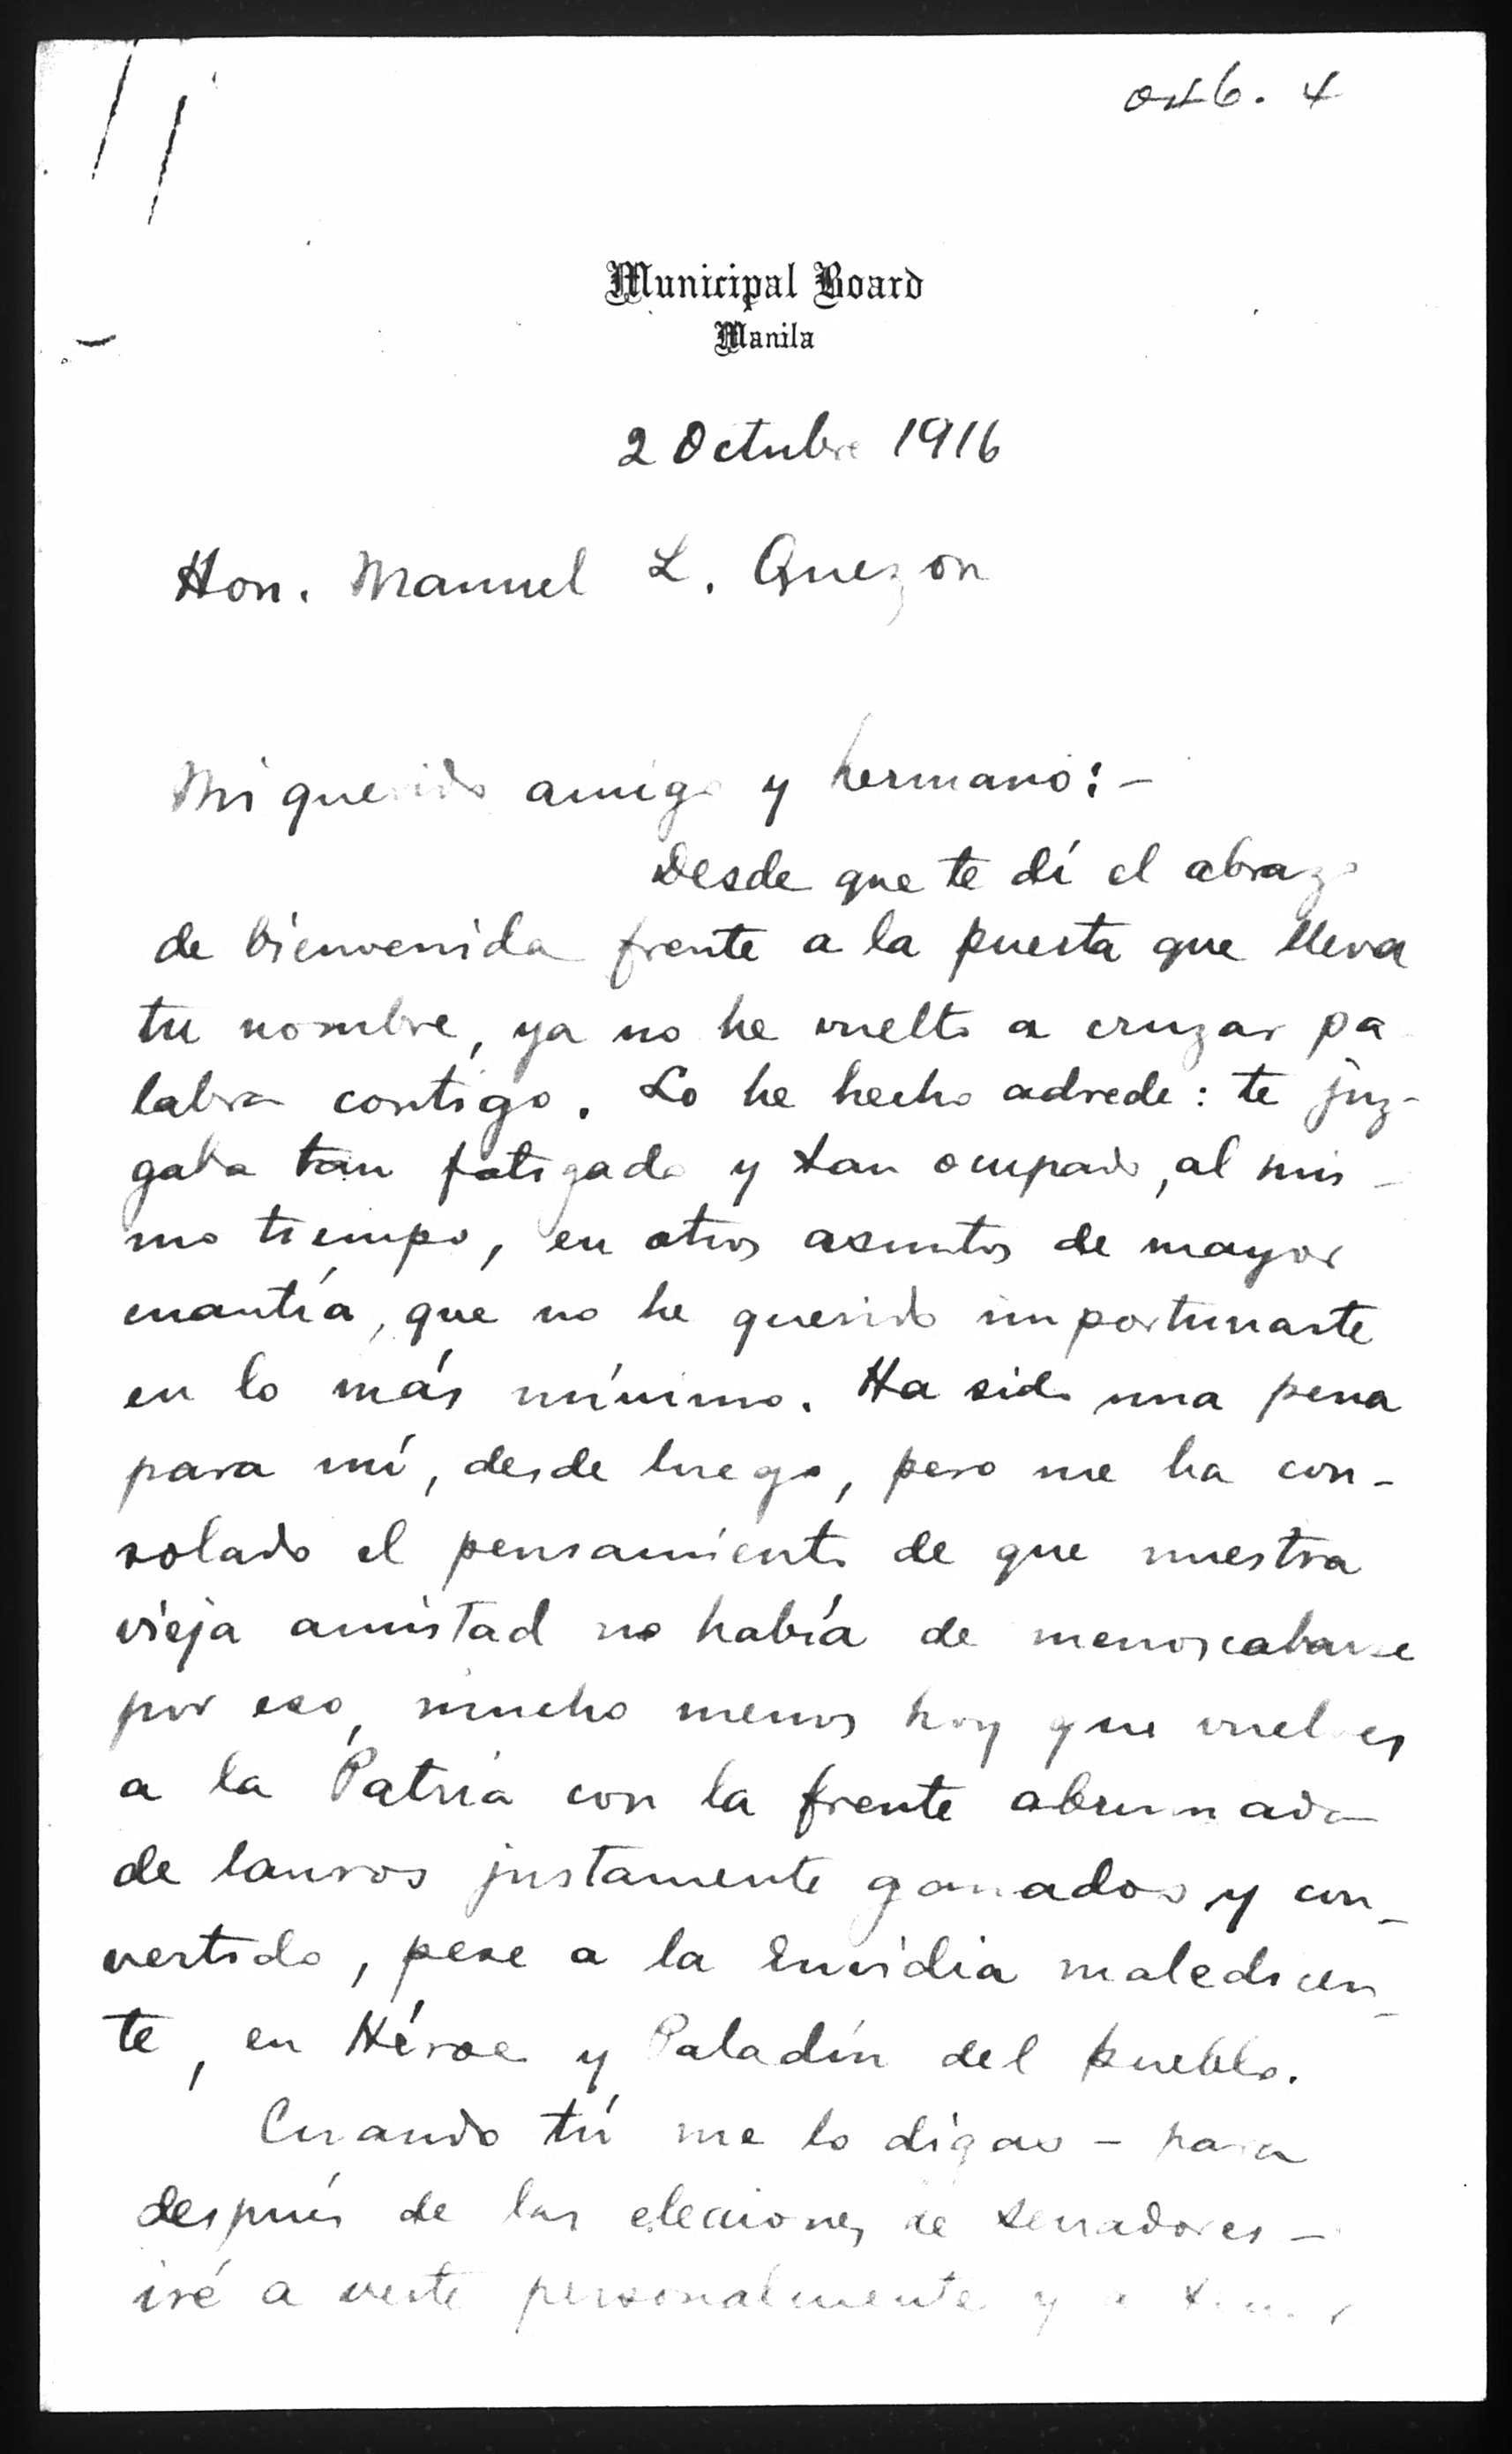 oct 6. 4
Municipal Board
Manila
2 Octubre 1916
Hon. Manuel L. Quezon
Mi querido amigo y hermano:-
Desde que te dí el abrazo
de bienvenida frente a la puerta que lleva
tu nombre, ya no he vuelto a cruzar pa
labra contigo. Lo he hecho adrede: te juz-
gaba tan fatigado y tan ocupado, al mis-
mo tiempo, en otros asuntos de mayor
cuantía, que no he querido importunarte
en lo más mínimo. Ha sido una pena
para mí, desde luego, pero me ha con-
solado el pensamiento de que nuestra
vieja amistad no había de menoscabarse
por eso, mucho menos hoy que vuelves
a la Patria con la frente abrumada
de lauros justamente ganados y con-
vertido, pese a la Envidia maledicen-
te, en Héroe y Paladín del pueblo.
Cuando tú me lo digas - para
después de las elecciones de senadores -
iré a verte personalmente y a